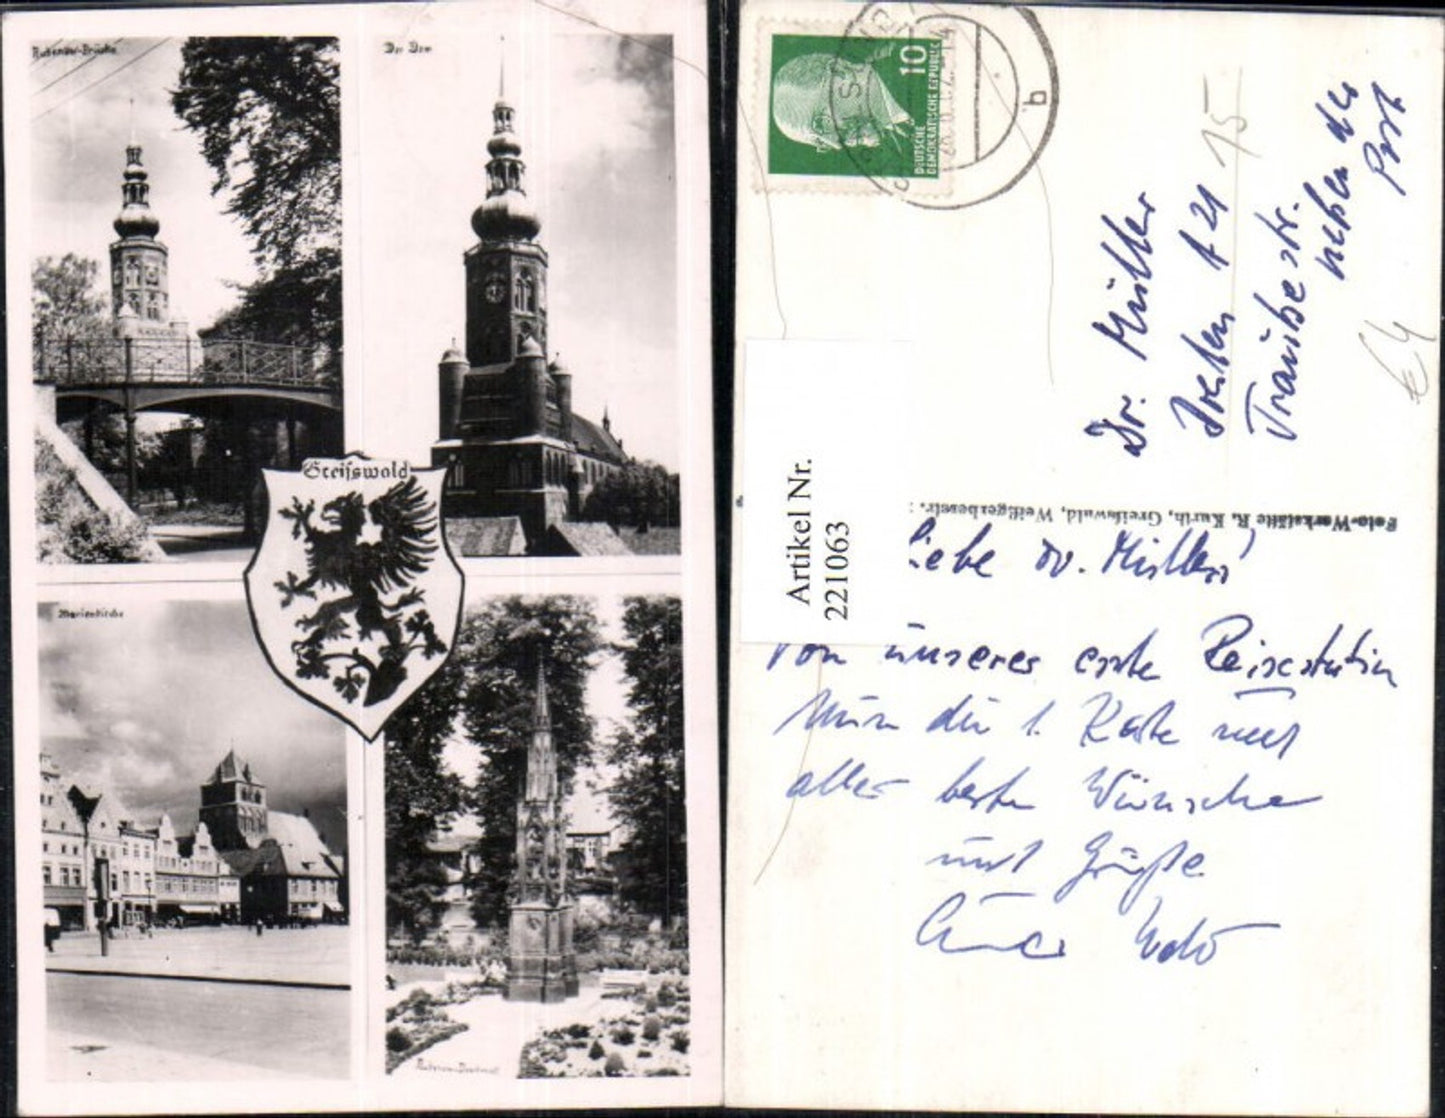 Rubenow-Brücke
Der Dom
Greifswald
Marienkirche
Rubenow-Denkmal
10
DEUTSCHE
DEMOKRATISCHE REPUBLIK
b
15
Dr. Müller
Dresden A 21
neben der
Post
€4
Artikel Nr.
221063
Foto-Werkstätte R. Kurth, Greifswald, Weißgerberstr.
Dr. Müller!
Von unserer erste Reisestation
die 1. Karte und
alle beste Wünsche
und Grüße
Euer Udo